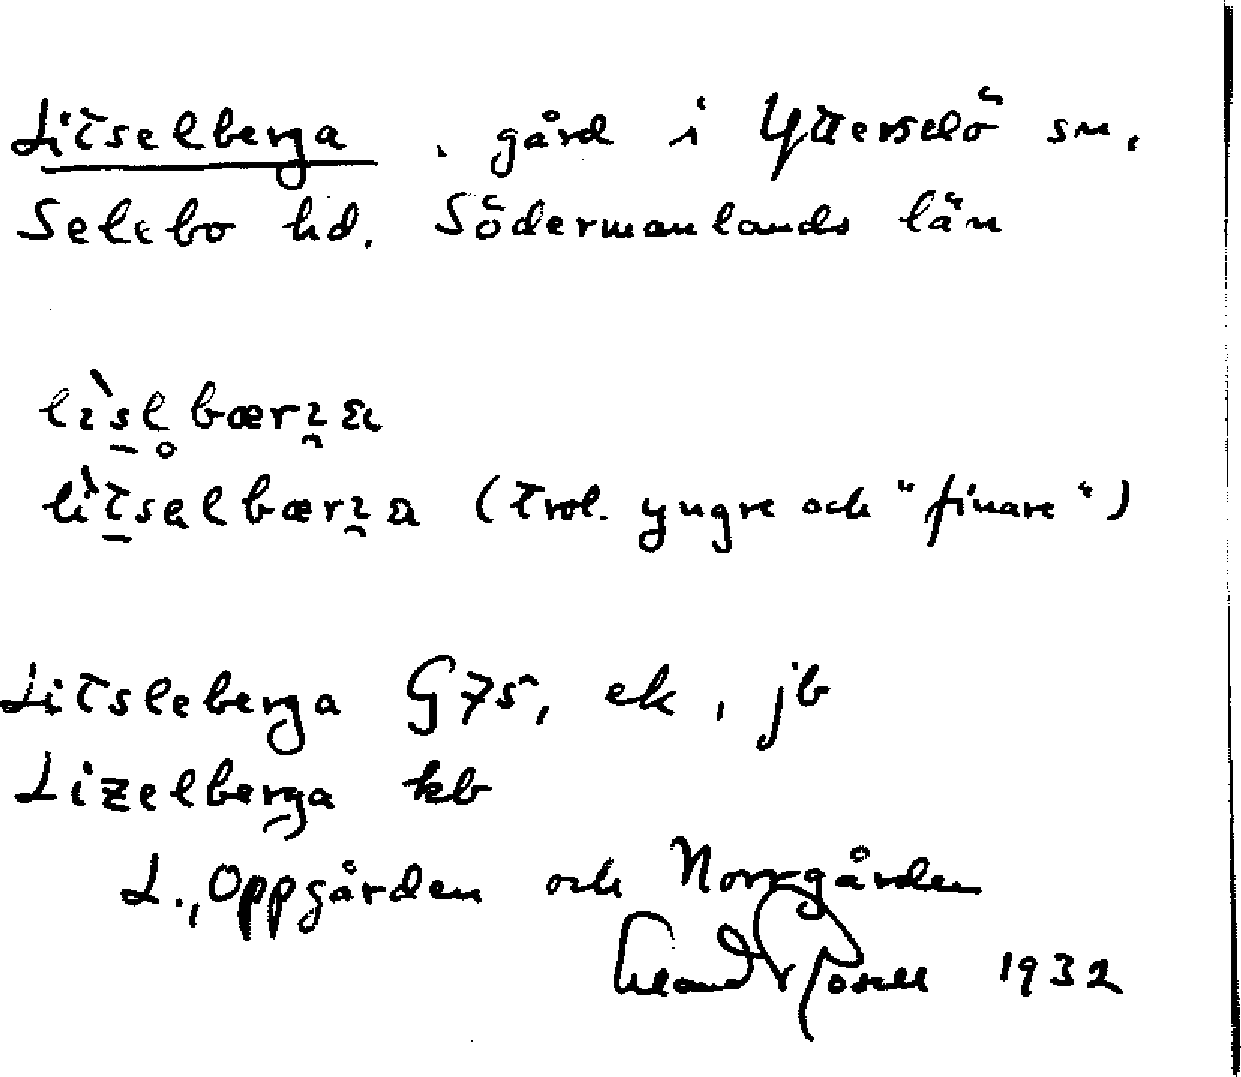 Litselberga, gård i Ytterselö sn.
Selebo hd. Södermanlands län
lìsl̥bærɜa
lìtsəlbærɜa (trol. yngre och "finare")
Litsleberga G75, ek, jb
Lizelberga kb
L., Oppgården och Norrgården
1932